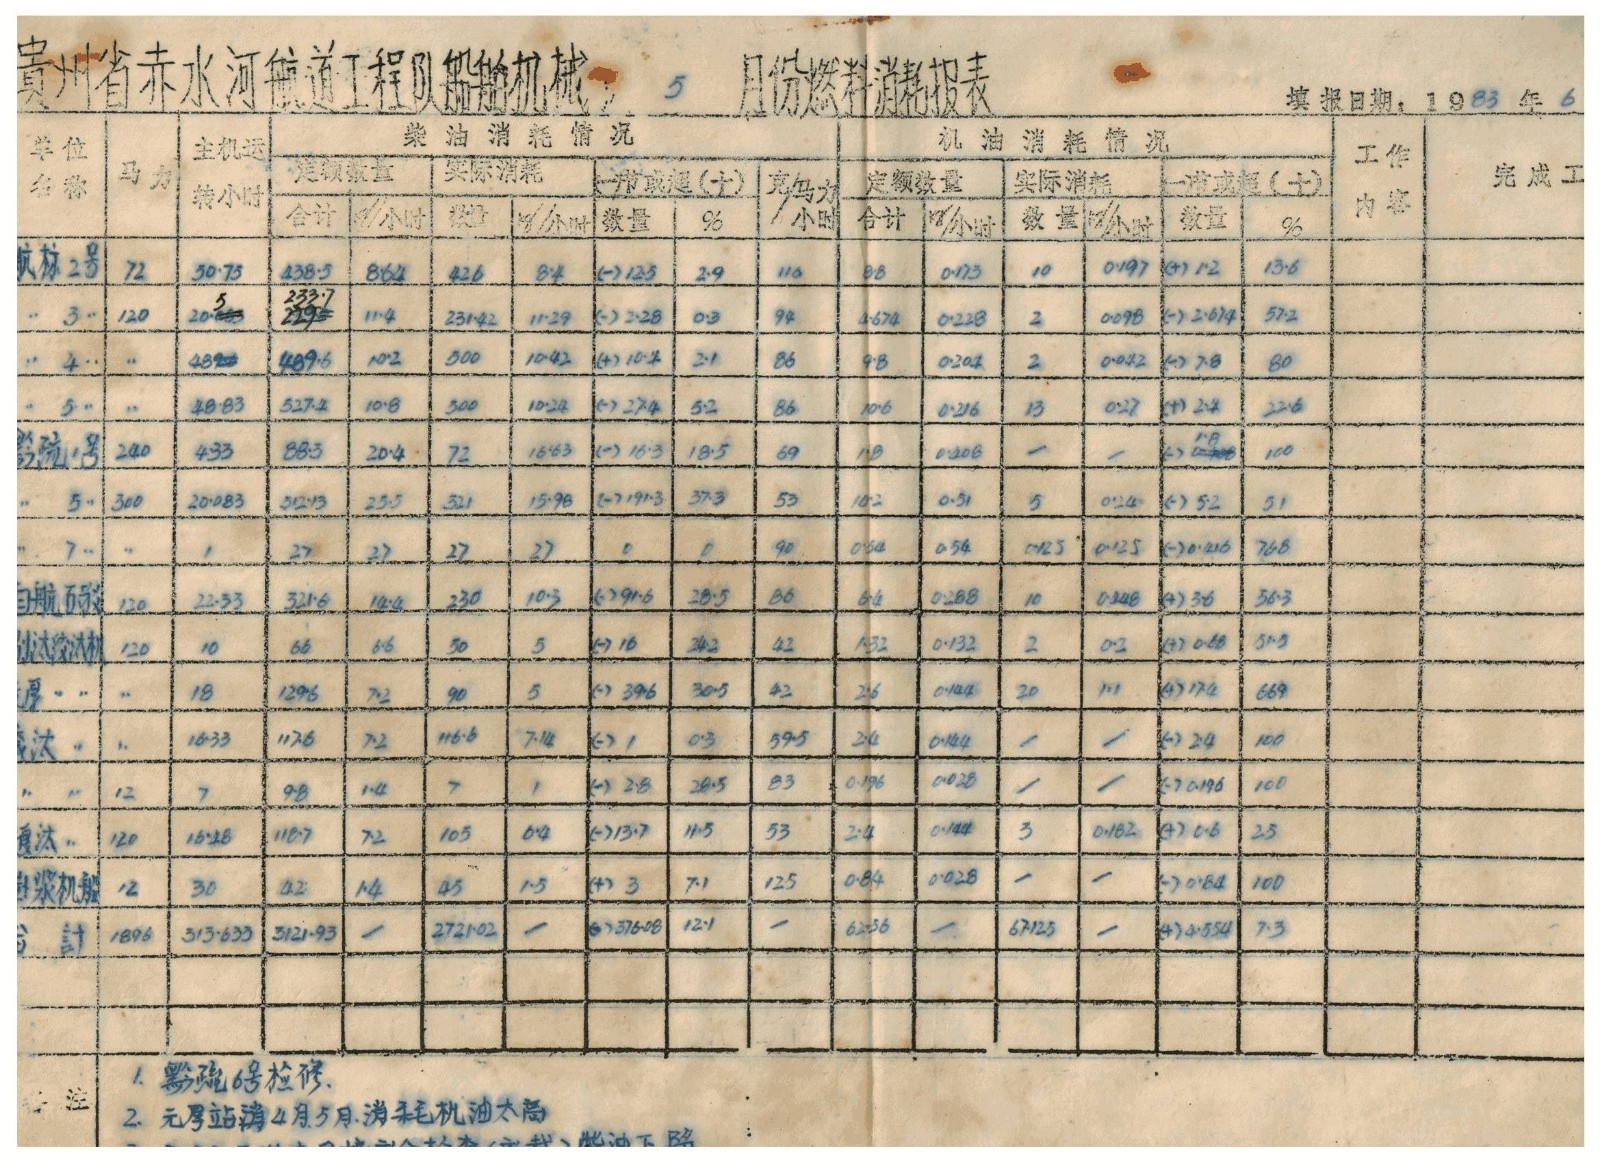 貴州省赤水河航道工程队船舶机械 5 月份燃料消耗报表
填报日期: 1983 年 6
单位名称 马力 主机运转小时 柴油消耗情况 机油消耗情况 工作内容 完成工
定额数量 实际消耗 节或超(十) 克/马力小时 定额数量 实际消耗 节或超(十)
合计 /小时 数量 /小时 数量 % 合计 /小时 数量 /小时 数量 %
航标2号 72 50.75 438.5 8.64 426 8.4 (-)12.5 2.9 116 8.8 0.173 10 0.197 (+)1.2 13.6
〃 3〃 120 20.5 233.7 11.4 231.42 11.29 (-)2.28 0.3 94 4.674 0.228 2 0.098 (-)2.674 57.2
〃 4〃 〃 48 489.6 10.2 500 10.42 (+)10.4 2.1 86 9.8 0.204 2 0.042 (-)7.8 80
〃 5〃 〃 48.83 527.4 10.8 500 10.24 (-)27.4 5.2 86 10.6 0.216 13 0.27 (+)2.4 22.6
黔疏1号 240 433 88.3 20.4 72 16.63 (-)16.3 18.5 69 1.8 0.408 / / (-)1.8 100
〃 5〃 300 20.083 512.13 25.5 321 15.98 (-)191.3 37.3 53 10.2 0.51 5 0.24 (-)5.2 51
〃 7〃 〃 1 27 27 27 27 0 0 90 0.54 0.54 0.125 0.125 (-)0.416 76.8
自航 120 22.33 321.6 14.4 230 10.3 (-)91.6 28.5 86 6.4 0.288 10 0.448 (+)3.6 56.3
汰绞汰机 120 10 66 6.6 50 5 (-)16 24.2 42 1.32 0.132 2 0.2 (+)0.68 51.5
厚〃 〃 〃 18 129.6 7.2 90 5 (-)39.6 30.5 42 2.6 0.144 20 1.1 (+)17.4 669
汰 〃 〃 16.33 117.6 7.2 116.6 7.14 (-)1 0.3 59.5 2.4 0.144 / / (-)2.4 100
〃 〃 12 7 9.8 1.4 7 1 (-)2.8 28.5 83 0.196 0.028 / / (-)0.196 100
汰〃 120 16.48 118.7 7.2 105 6.4 (-)13.7 11.5 53 2.4 0.144 3 0.182 (+)0.6 25
浆机船 12 30 42 1.4 45 1.5 (+)3 7.1 125 0.84 0.028 / / (-)0.84 100
合計 1896 313.633 3121.93 / 2721.02 / (-)376.08 12.1 / 62.56 / 67.125 / (+)4.554 7.3
备注
1. 黔疏6号检修.
2. 元厚站消4月5月.消耗机油太高